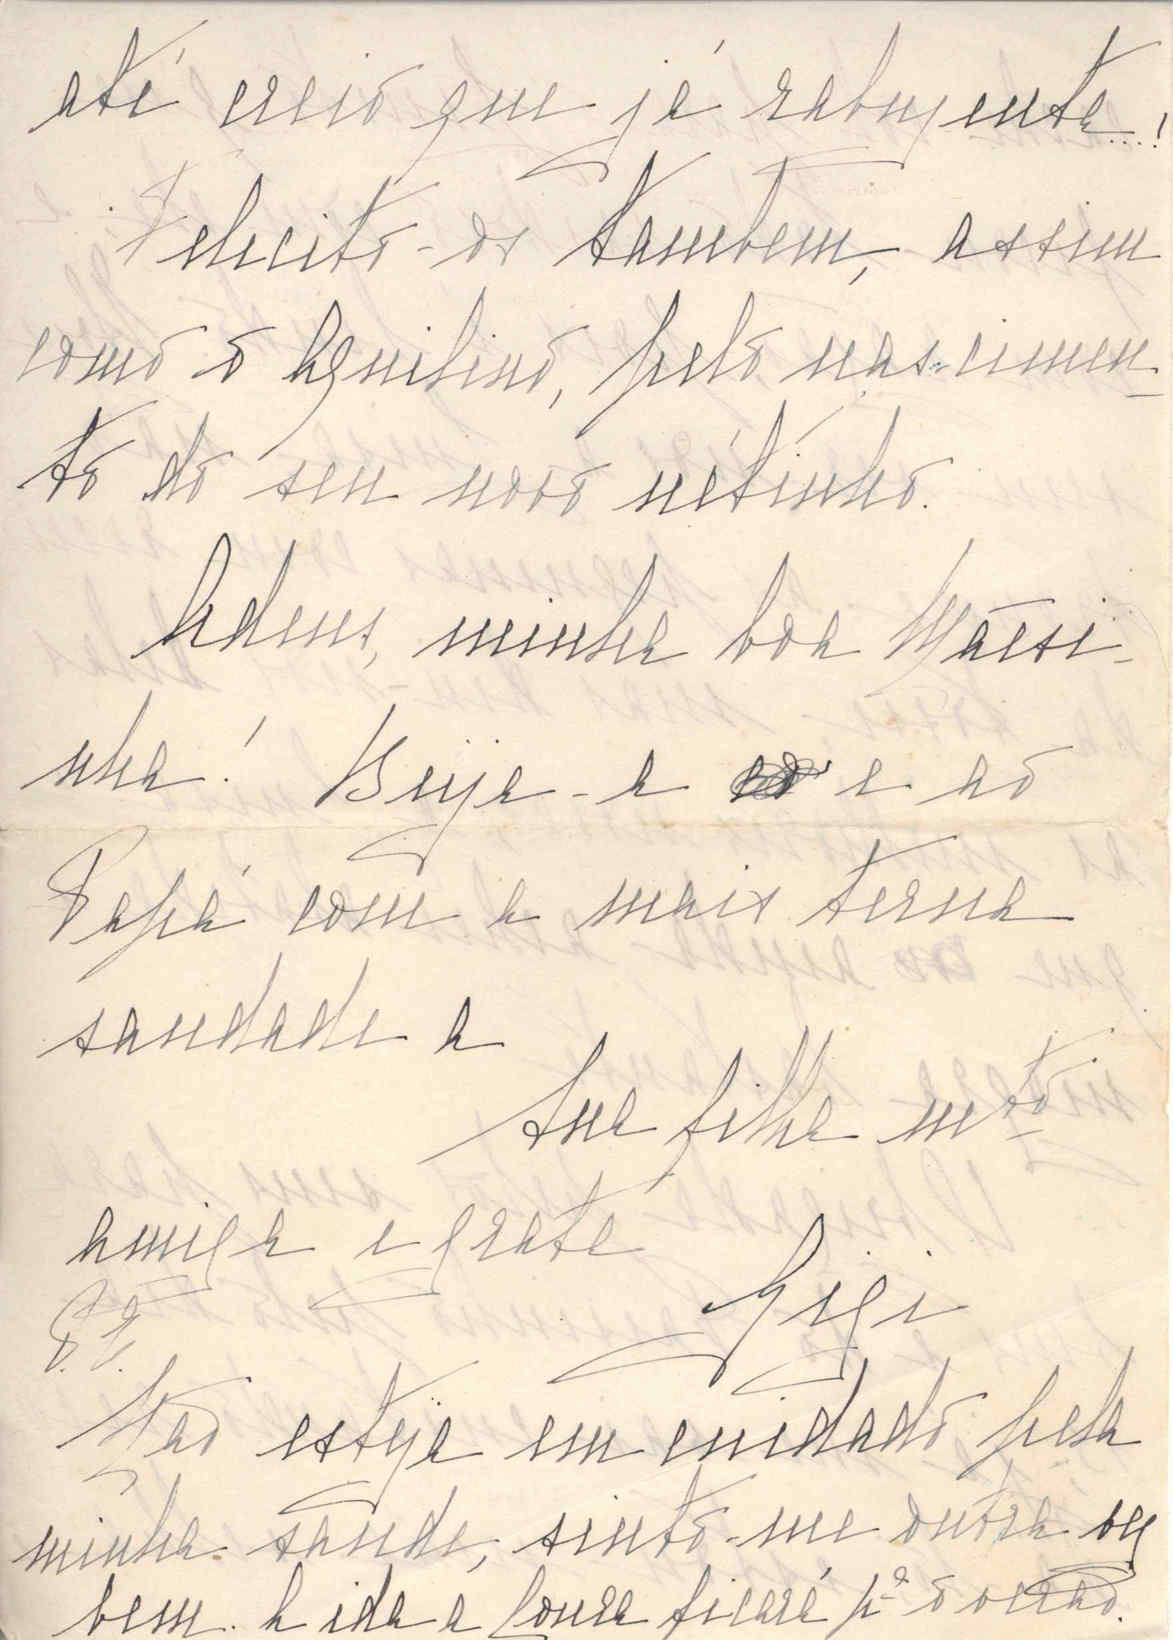 até creio que já rabujenta....!
Felicito-os tambem, assim
como o Aquilino, pelo nascimen-
to do seu novo nétinho.
Adeus, minha boa Mãesi-
nha! Beija-a e ao
Papá com a mais terna
saudade a
Sua filha mto
amiga e grata
Gigi
P.S.
Não esteja em cuidado pela
minha saude, sinto-me outra vez
bem. A ida a Loura ficará pa o verão.